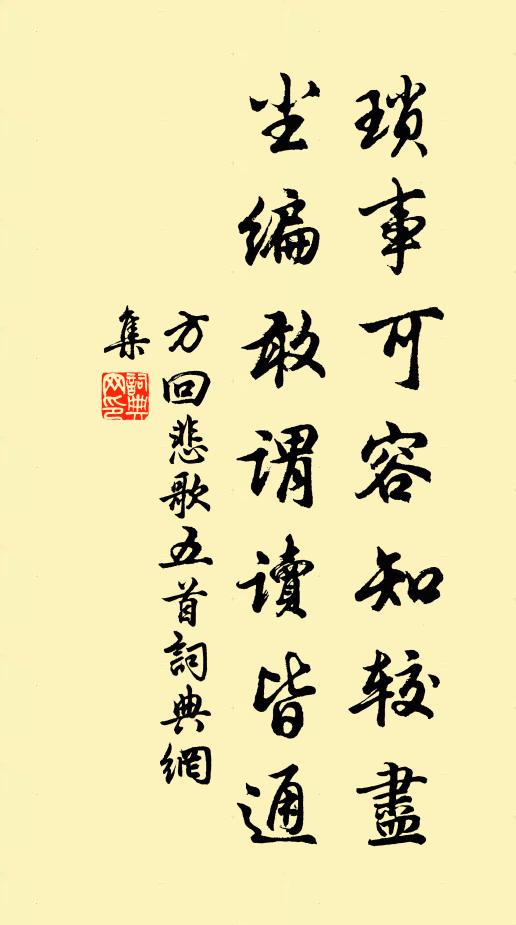 瑣事可容知較盡
坐編敢謂讀皆通
方回悲歌五首詞典網
集
詞典
网印